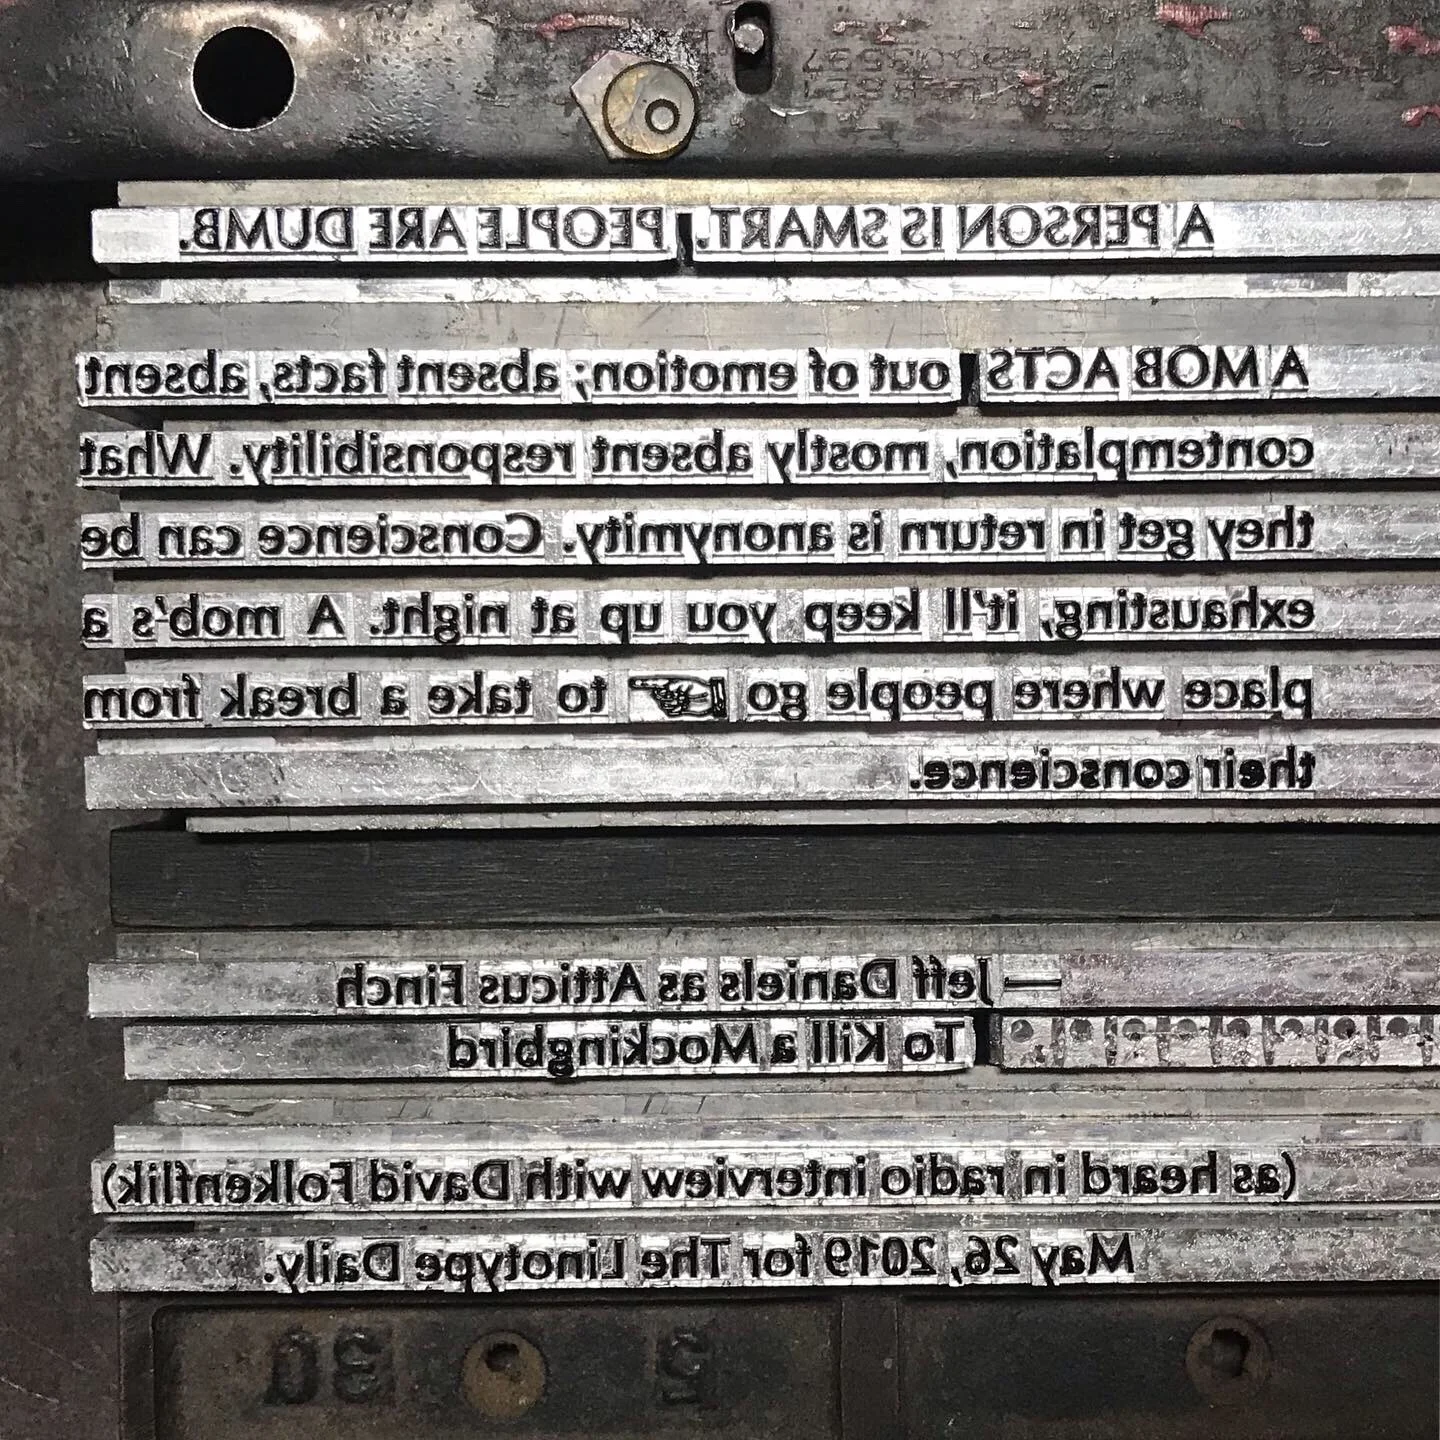 A PERSON IS SMART. PEOPLE ARE DUMB.
A MOB ACTS out of emotion; absent facts, absent
contemplation, mostly absent responsibility. What
they get in return is anonymity. Conscience can be
exhausting, it'll keep you up at night. A mob's a
place where people go ☞ to take a break from
their conscience.
—Jeff Daniels as Atticus Finch
To Kill a Mockingbird
(as heard in radio interview with David Folkenflik)
May 26, 2019 for The Linotype Daily.
5 30